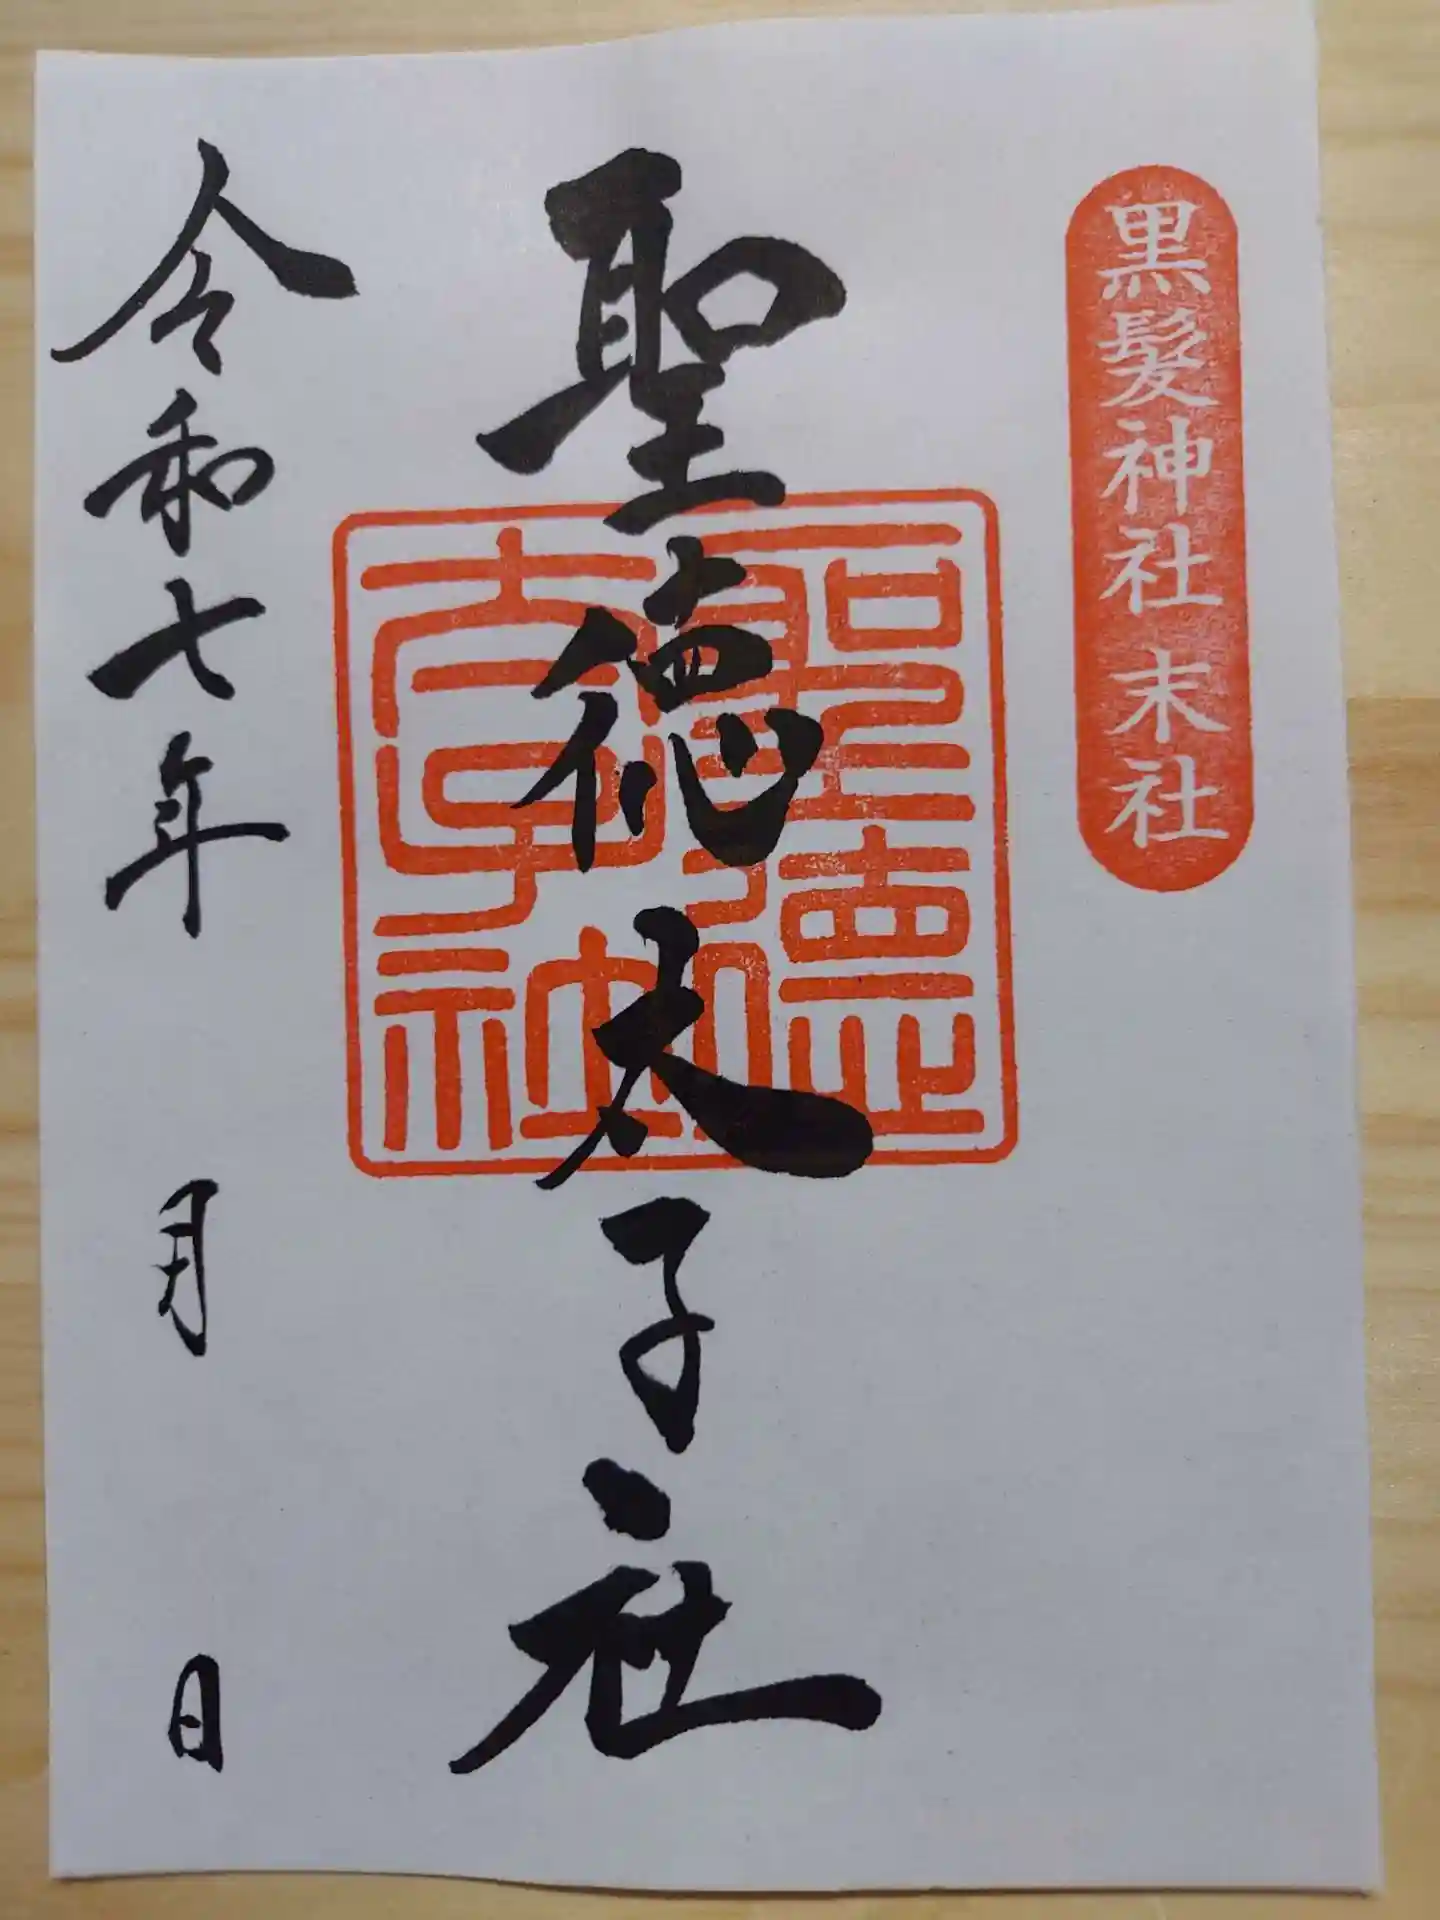 黒髪神社 末社
聖徳太子社
聖徳太子社
令和七年 月 日